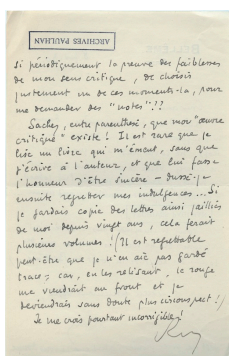 ARCHIVES PAULHAN
si périodiquement la preuve des faiblesses
de mon sens critique, de choisir
justement un de ces moments-là, pour
me demander des "notes"!?
Sachez, entre parenthèse, que mon "œuvre
critique" existe! Il est rare que je
lise un livre qui m'émeut, sans que
j'écrive à l'auteur, et que lui fasse
l'honneur d'être sincère – dussé-je
ensuite regretter mes indulgences... Si
je gardais copie des lettres ainsi jaillies
de moi depuis vingt ans, cela ferait
plusieurs volumes! (Il est regrettable
peut-être que je n'en aie pas gardé
trace; car, en les relisant, le rouge
me viendrait au front et je
deviendrais sans doute plus circonspect!)
Je me crois pourtant incorrigible!